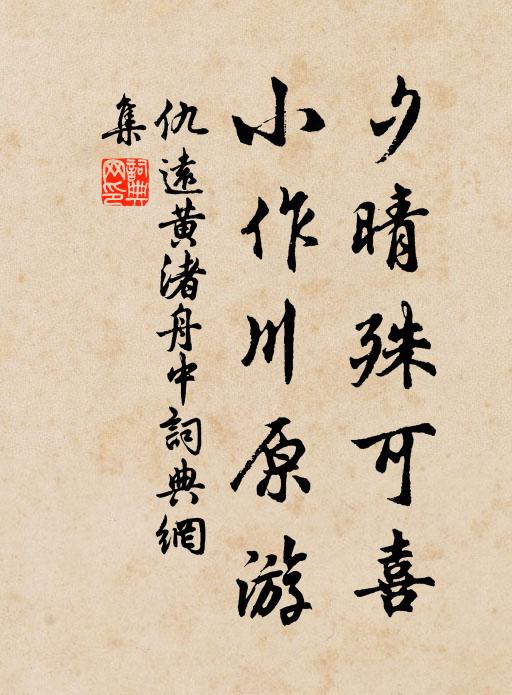 夕晴殊可喜
小作川原游
仇遠黃渚舟中詞典網
集
詞典網印